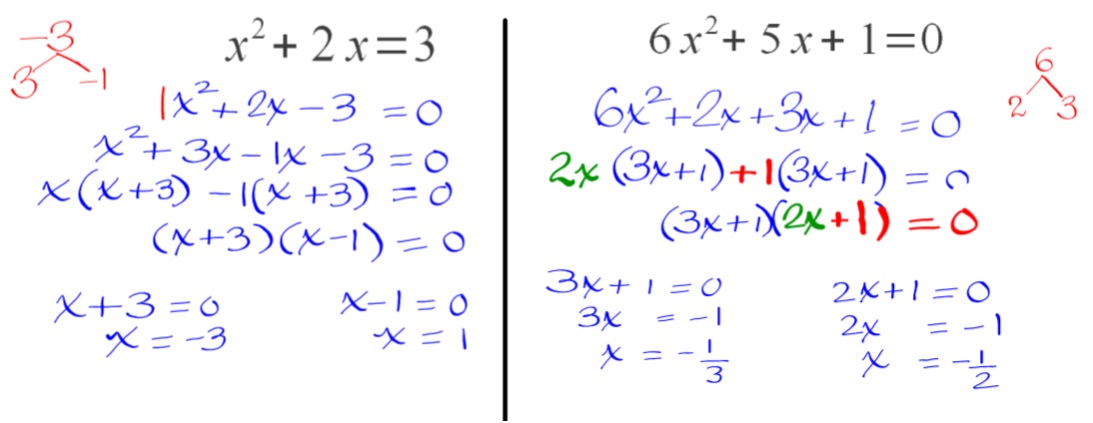 -3
3 -1
x² + 2x = 3
1x² + 2x - 3 = 0
x² + 3x - 1x - 3 = 0
x(x+3) - 1(x+3) = 0
(x+3)(x-1) = 0
x+3 = 0 x-1 = 0
x = -3 x = 1
6x² + 5x + 1 = 0
6
2 3
6x² + 2x + 3x + 1 = 0
2x(3x+1) + 1(3x+1) = 0
(3x+1)(2x+1) = 0
3x + 1 = 0 2x + 1 = 0
3x = -1 2x = -1
x = -1/3 x = -1/2